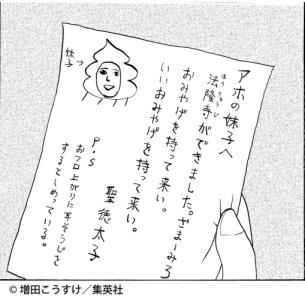 アホの妹子へ
法隆寺ができました。ざまーみろ
ほうりゅうじ
おみやげを持って来い。
いいおみやげを持って来い。
聖徳太子
P.S
おフロ上がりに耳そうじを
するとしめっている。
妹子→
© 増田こうすけ／集英社